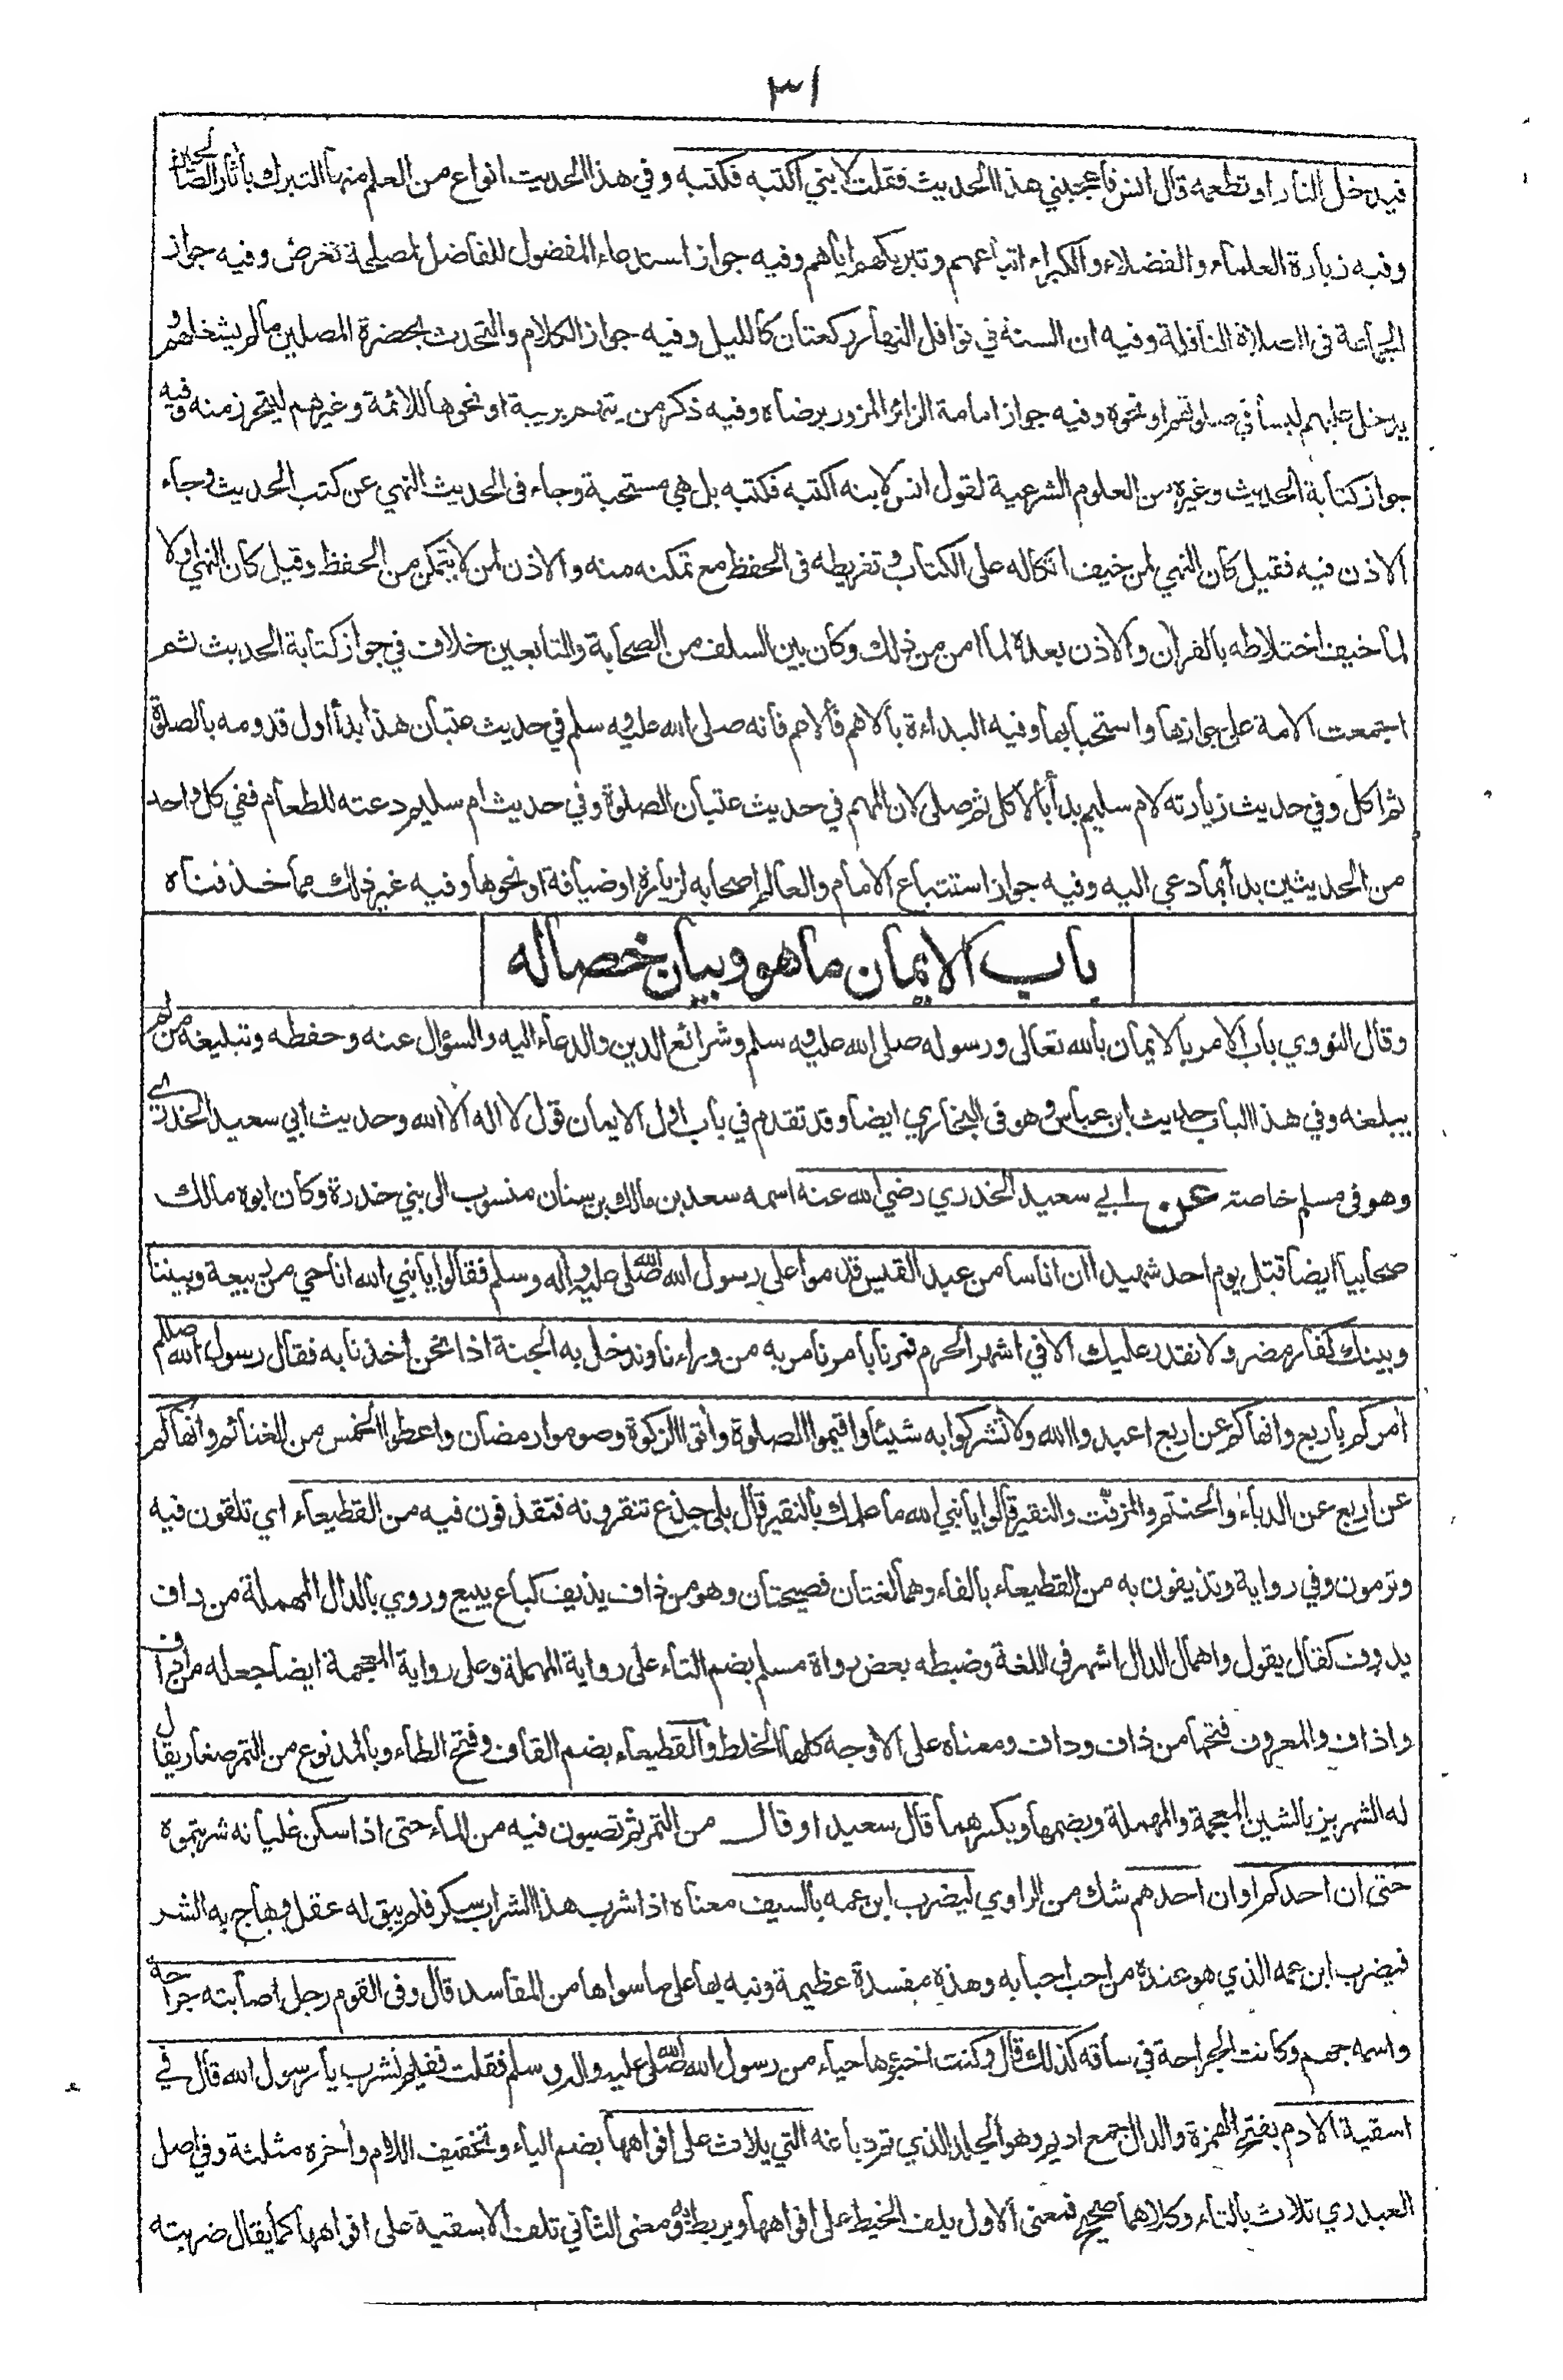 ٣١
فيدخل النار او تطعمه قال انس فاعجبني هذا الحديث فقلت لابني اكتبه فكتبه وفي هذا الحديث انواع من العلم منها التبرك بأثار الصالحين
وفيه زيارة العلماء والفضلاء والكبراء اتباعهم وتبريكهم اياهم وفيه جواز استدعاء المفضول للفاضل لمصلحة تعرض وفيه جواز
الجماعة في الصلاة النافلة وفيه ان السنة في نوافل النهار ركعتان كالليل وفيه جواز الكلام والتحدث بحضرة المصلين ما لم يشغلهم و
يدخل عليهم لبسا في صلوتهم او نحوه وفيه جواز امامة الزائر المزور برضاه وفيه ذكر من يتهم بريبة او نحوها للائمة وغيرهم ليتحرز منه وفيه
جواز كتابة الحديث وغيره من العلوم الشرعية لقول انس لابنه اكتبه فكتبه بل هي مستحبة وجاء في الحديث النهي عن كتب الحديث وجاء
الاذن فيه فقيل كان النهي لمن خيف اتكاله على الكتاب وتفريطه في الحفظ مع تمكنه منه والاذن لمن لا يتمكن من الحفظ وقيل كان النهي اولا
لما خيف اختلاطه بالقرأن والاذن بعده لما امن من ذلك وكان بين السلف من الصحابة والتابعين خلاف في جواز كتابة الحديث ثم
اجتمعت الامة على جوازها واستحبابها وفيه البداءة بالاهم فالاهم فانه صلى الله عليه وسلم في حديث عتبان هذا بدأ اول قدومه بالصلوة
ثم اكل وفي حديث زيارته لام سليم بدأ بالاكل ثم صلى لان المهم في حديث عتبان الصلوة وفي حديث ام سليم دعته للطعام ففي كل واحد
من الحديثين بدأ بما دعي اليه وفيه جواز استتباع الامام والعالم اصحابه لزيارة او ضيافة او نحوها وفيه غير ذلك مما حذفناه
باب الايمان ما هو وبيان خصاله
وقال النووي باب الامر بالايمان بالله تعالى ورسوله صلى الله عليه وسلم وشرائع الدين والدعاء اليه والسؤال عنه وحفظه وتبليغه من لم
يبلغه وفي هذا الباب حديث ابن عباس وهو في البخاري ايضا وقد تقدم في باب اول الايمان قول لا اله الا الله وحديث ابي سعيد الخدري
وهو في مسلم خاصة عن ابي سعيد الخدري رضي الله عنه اسمه سعد بن مالك بن سنان منسوب الى بني خدرة وكان ابوه مالك
صحابيا ايضا قتل يوم احد شهيدا ان اناسا من عبد القيس قدموا على رسول الله صلى الله عليه واله وسلم فقالوا يا نبي الله انا حي من ربيعة وبيننا
وبينك كفار مضر ولا نقدر عليك الا في اشهر الحرم فمرنا بامر نامر به من وراءنا وندخل به الجنة اذا نحن اخذنا به فقال رسول الله صللم
أمركم باربع وانهاكم عن اربع اعبدوا الله ولا تشركوا به شيئا واقيموا الصلوة وأتوا الزكوة وصوموا رمضان واعطوا الخمس من الغنائم وانهاكم
عن اربع عن الدباء والحنتم والمزفت والنقير قالوا يا نبي الله ما علمك بالنقير قال بلى جذع تنقرونه فتقذفون فيه من القطيعاء اي تلقون فيه
وترمون وفي رواية وتذيفون به من القطيعاء بالفاء وهما لغتان فصيحتان وهو من ذاف يذيف كباع يبيع وروي بالدال المهملة من داف
يدوف كقال يقول واهمال الدال اشهر في اللغة وضبطه بعض رواة مسلم بضم التاء على رواية المهملة وعلى رواية المعجمة ايضا جعله من اداف
واذاف والمعروف فتحها من ذاف وداف ومعناه على الاوجه كلها الخلط والقطيعاء بضم القاف وفتح الطاء وبالمد نوع من التمر صغار يقال
له الشهريز بالشين المعجمة والمهملة وبضمها وبكسرهما قال سعيد او قال من التمر ثم تصبون فيه من الماء حتى اذا سكن غليانه شربتموه
حتى ان احدكم او ان احدهم شك من الراوي ليضرب ابن عمه بالسيف معناه اذا شرب هذا الشراب سكر فلم يبق له عقل وهاج به الشر
فيضرب ابن عمه الذي هو عنده من احب احبابه وهذه مفسدة عظيمة ونبه بها على ما سواها من المفاسد قال وفي القوم رجل اصابته جراحة
واسمه جهم وكانت الجراحة في ساقه كذلك قال وكنت اخبؤها حياء من رسول الله صلى الله عليه واله وسلم فقلت ففيم نشرب يا رسول الله قال في
اسقية الادم بفتح الهمزة والدال جمع اديم وهو الجلد الذي تم دباغه التي يلاث على افواهها بضم الياء وتخفيف اللام وأخره مثلثة وفي اصل
العبدري تلاث بالتاء وكلاهما صحيح فمعنى الاول يلف الخيط على افواهها ويربط به ومعنى الثاني تلف الاسقية على افواهها كما يقال ضربته